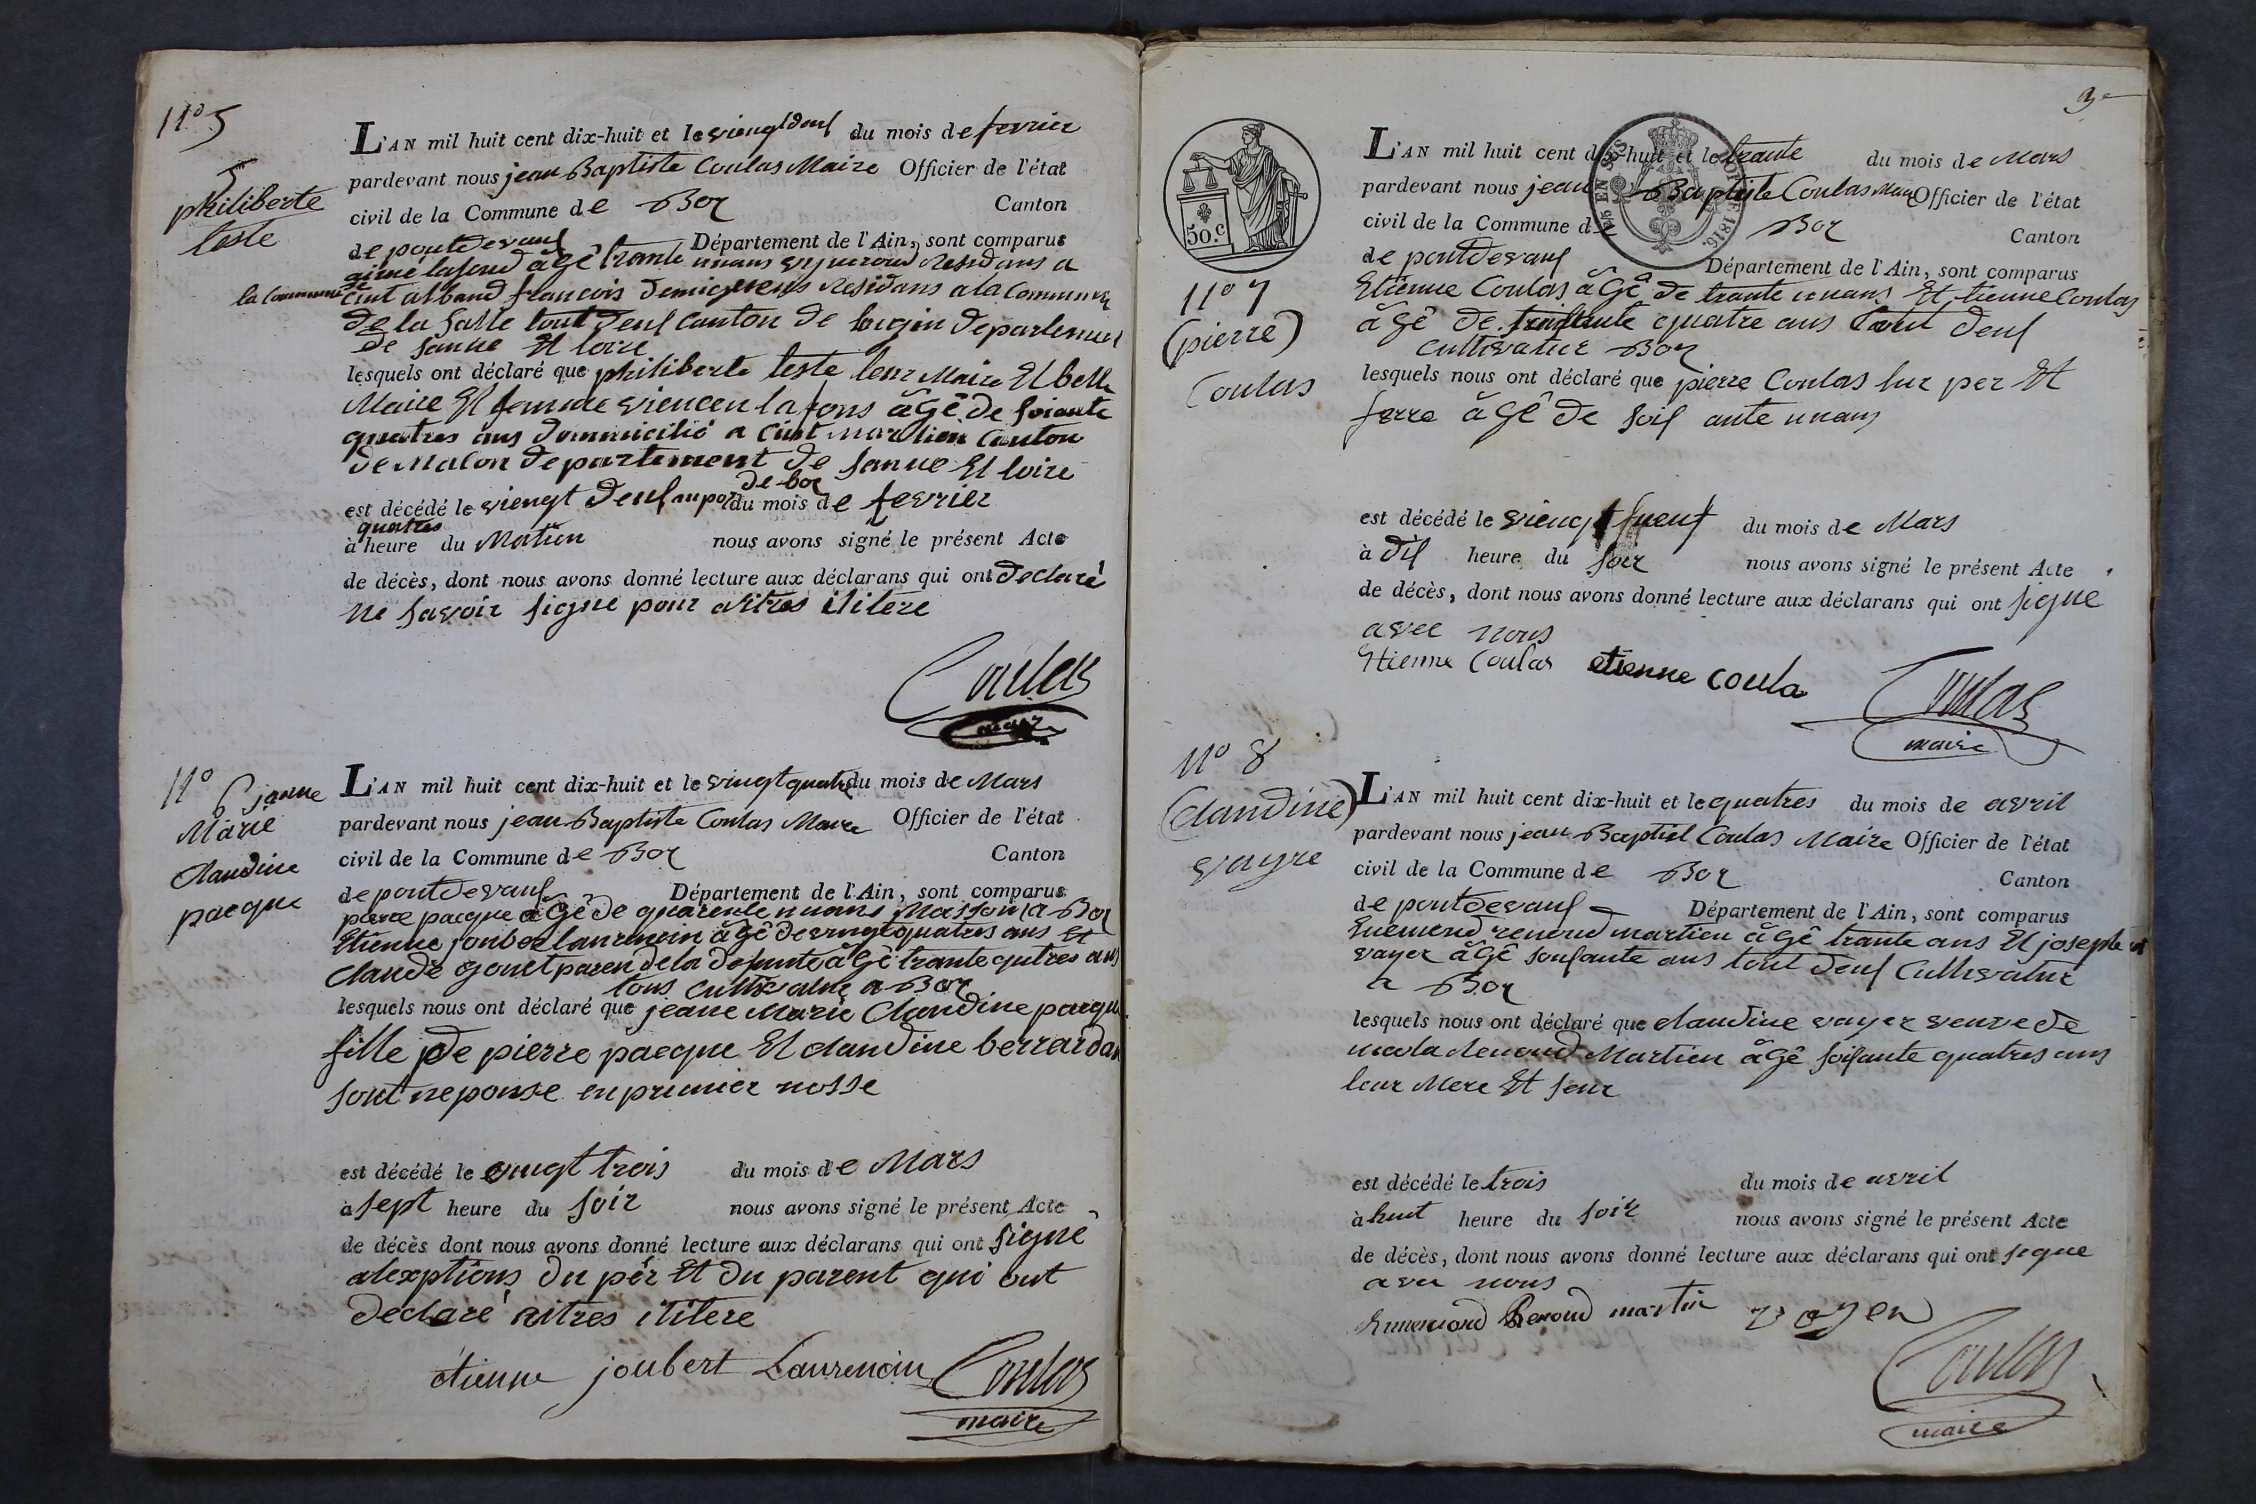 N° 5
5
philiberte
teste
L'AN mil huit cent dix-huit et le viengtdeuf du mois de fevrier
pardevant nous jean Baptiste Coulas Maire Officier de l'état
civil de la Commune de Boz Canton
de pontdevauf Département de l'Ain, sont comparus
aimé lafond âgê trante unans Residans a
la Commune de
cint alband francois Residans a la Commune
de la Salle tout deuf canton de lugin departement
de sanne Et loire
lesquels ont déclaré que philiberte teste leur Maire Et belle
Maire Et femme viencen lafons âgê de soiante
quatres ans dommicilié a cint Martien Canton
de Macon departement de sanne Et loire
de boz
est décédé le viengt deuf au por du mois de fevrier
quatres
à heure du Matien nous avons signé le présent Acte
de décès, dont nous avons donné lecture aux déclarans qui ont declaré
ne savoir signe pour aitres ilitere
Coulas
maire
N° 6 janne
Marie
Claudine
pacque
L'AN mil huit cent dix-huit et le vingtquatre du mois de Mars
pardevant nous jean Baptiste Coulas Maire Officier de l'état
civil de la Commune de Boz Canton
de pontdevauf Département de l'Ain, sont comparus
pierre pacque âgê de quarente unans Masson a Boz
Etienne joubert laurencin âgê de vingtquatres ans Et
claude gonet paren de la defunte âgê trante qutres ans
tous cultivatur a Boz
lesquels nous ont déclaré que jeane Marie Claudine pacque
fille de pierre pacque Et claudine berrardan
sont neponse en prumier nosse
est décédé le vingt trois du mois de Mars
à sept heure du soir nous avons signé le présent Acte
de décès dont nous avons donné lecture aux déclarans qui ont signé
alexptions du pér Et du parent qui ont
declaré aitres ilitere
étienne joubert Laurencin Coulas
maire
3e
50.c
N° 7
(pierre)
Coulas
L'AN mil huit cent dix-huit et le trante du mois de Mars
pardevant nous jean Baptiste Coulas Maire Officier de l'état
civil de la Commune de Boz Canton
de pontdevauf Département de l'Ain, sont comparus
Etienne Coulas âgê de trante unans Et tienne Coulas
âgê de trante quatre ans tout deuf
cultivatur Boz
lesquels nous ont déclaré que pierre Coulas lur per Et
ferre âgê de soif ante unans
est décédé le viengt fneuf du mois de Mars
à dif heure du soir nous avons signé le présent Acte
de décès, dont nous avons donné lecture aux déclarans qui ont signe
avec nous
Etienne Coulas etienne coula Coulas
maire
N° 8
(Claudine)
vayre
L'AN mil huit cent dix-huit et le quatres du mois de avril
pardevant nous jean Baptiel Coulas Maire Officier de l'état
civil de la Commune de Boz Canton
de pontdevauf Département de l'Ain, sont comparus
Enemend renoud martien âgê trante ans Et joseph
vayer âgê soufante ans tout deuf Cultivatur
a Boz
lesquels nous ont déclaré que claudine vayer veuve de
nicola Renoud Martien âgê soifante quatres ans
leur Mere Et seur
est décédé le trois du mois de avril
à huit heure du soir nous avons signé le présent Acte
de décès, dont nous avons donné lecture aux déclarans qui ont signe
avec nous
Ennemond Renoud martin vayer
Coulas
maire